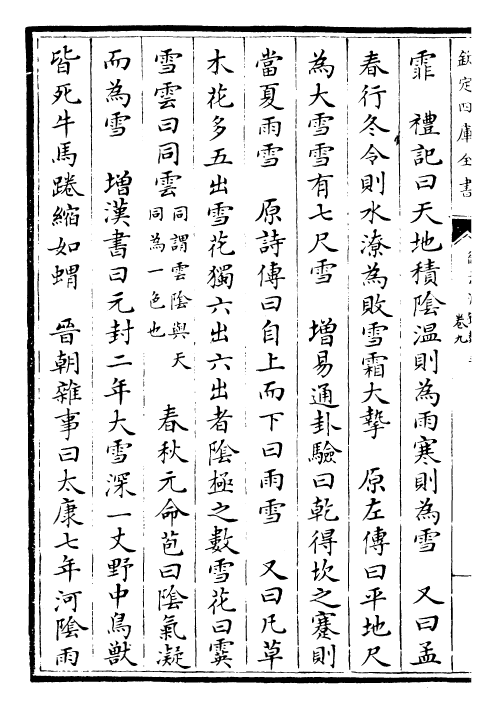 欽定四庫全書
卷九
霏　禮記曰天地積陰温則為雨寒則為雪　又曰孟
春行冬令則水潦為敗雪霜大摯　原左傳曰平地尺
為大雪雪有七尺雪　増易通卦驗曰乾得坎之蹇則
當夏雨雪　原詩傳曰自上而下曰雨雪　又曰凡草
木花多五出雪花獨六出六出者陰極之數雪花曰霙
雪雲曰同雲同謂雲陰與天同為一色也　春秋元命苞曰陰氣凝
而為雪　増漢書曰元封二年大雪深一丈野中鳥獸
皆死牛馬踡縮如蝟　晉朝雜事曰太康七年河陰雨